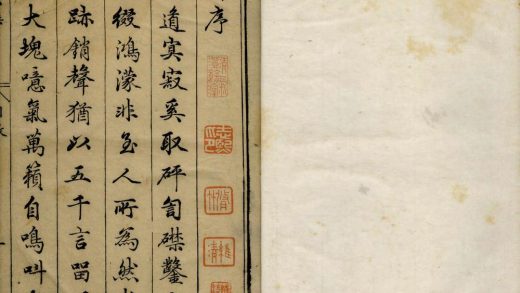 序
道㝠寂奚取砰訇磔鑿
綴鴻濛非至人所為然
跡銷聲猶以五千言留
大塊噫氣萬籟自鳴叫